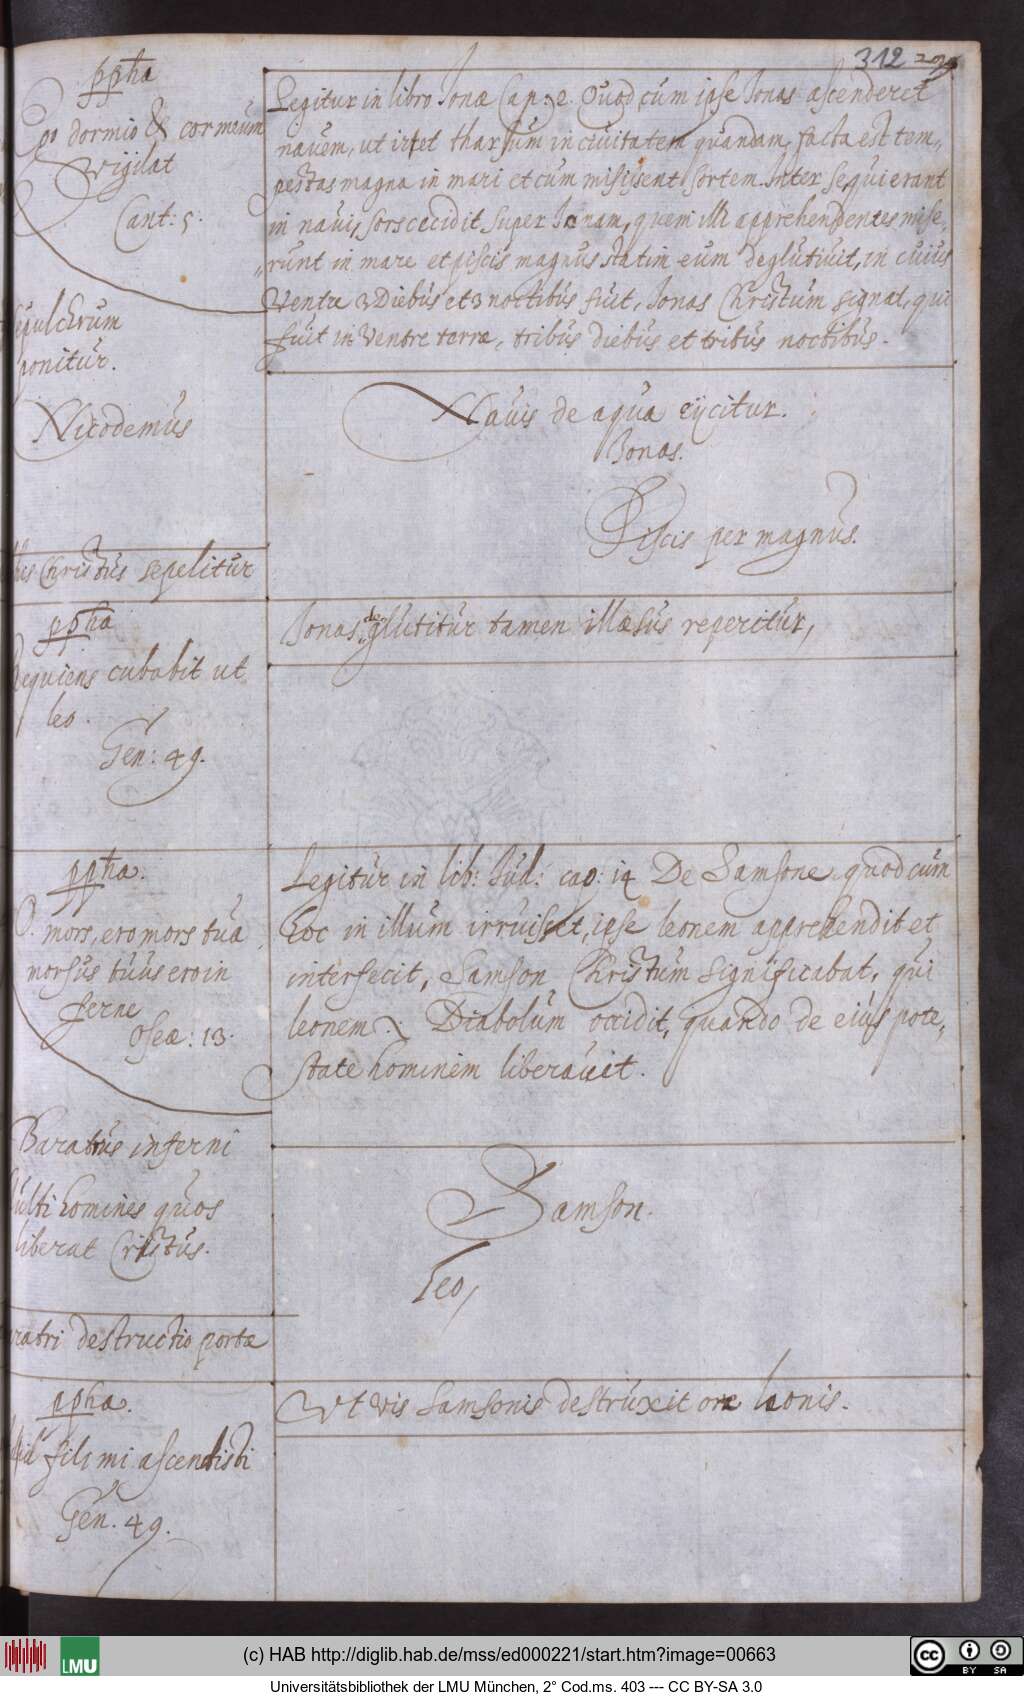 312 299
ppha
Ego dormio & cor meum
vigilat
Cant: 5.
sepulchrum
ponitur.
Nicodemus
Christus sepelitur
ppha
Requiens cubabit ut
leo.
Gen: 49.
ppha.
O. mors, ero mors tua
morsus tuus ero in
ferne
Oseæ: 13.
Baratrus inferni
Multi homines quos
liberat Cristus.
ratri destructio portæ
ppha.
fili mi ascendisti
Gen. 49.
Legitur in libro Jonæ Cap: 2. Quod cum ipse Jonas ascenderet
navem, ut iret tharsum in civitatem quandam, facta est tem,
pestas magna in mari et cum misissent sortem inter se, qui erant
in navi, sors cecidit super Jonam, quem illi apprehendentes mise,
„runt in mare et piscis magnus statim eum deglutivit, in cuius
Ventre 3 Diebus et 3 noctibus fuit, Jonas Christum signat, qui
fuit in Ventre terræ, tribus diebus et tribus noctibus.
Navis de aqua eijcitur.
Jonas.
Piscis per magnus.
Jonas deglutitur tamen illæsus reperitur,
Legitur in lib: Jud: cap: 14 De Samsone quod cum
Eoc in illum irruisset, ipse leonem apprehendit et
intersecit, Samson Christum significabat, qui
leonem : Diabolum occidit, quando de eius pote,
state hominem liberavit.
Samson.
Leo,
Ut vis Samsonis destruxit ora leonis.
(c) HAB http://diglib.hab.de/mss/ed000221/start.htm?image=00663
Universitätsbibliothek der LMU München, 2° Cod.ms. 403 --- CC BY-SA 3.0
LMU
cc BY SA